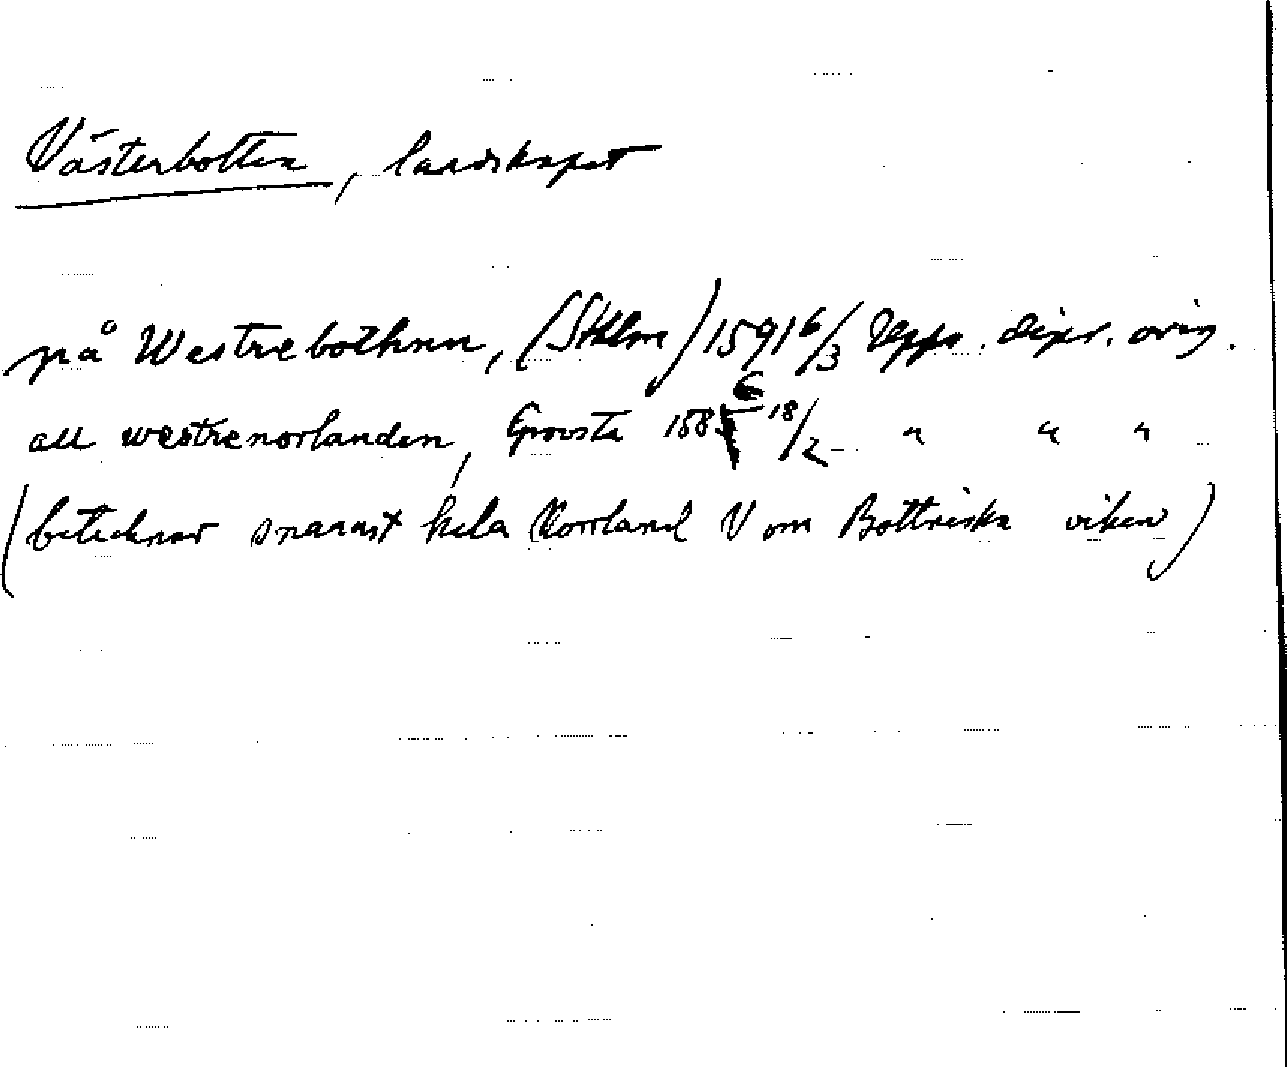 Västerbotten, landskapet
på Westrebothnn, (Sthlm) 1591 6/3 Upps. dipr. orig.
all westrenorlanden, Grovsta 1586 18/2 " " "
(betecknar snarast hela Norrland V om Bottniska viken)